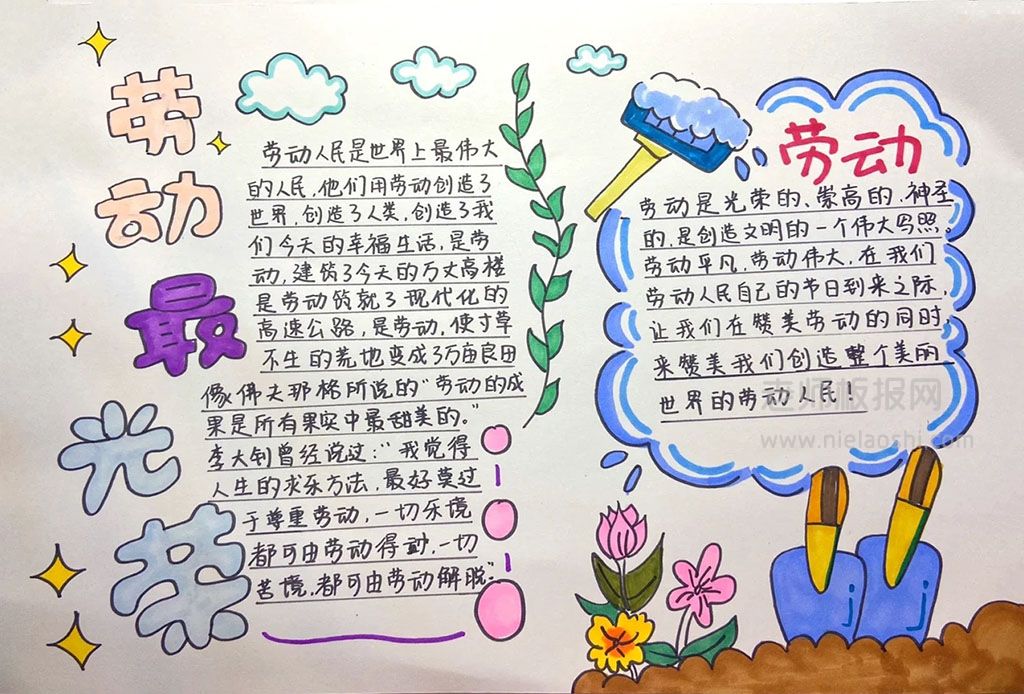 劳动最光荣
劳动人民是世界上最伟大
的人民，他们用劳动创造了
世界，创造了人类，创造了我
们今天的幸福生活，是劳
动，建筑了今天的万丈高楼
是劳动筑就了现代化的
高速公路，是劳动，使寸草
不生的荒地变成了万亩良田
像佛夫那格所说的“劳动的成
果是所有果实中最甜美的。”
李大钊曾经说过：“我觉得
人生的求乐方法，最好莫过
于尊重劳动，一切乐境
都可由劳动得到，一切
苦境，都可由劳动解脱”
劳动
劳动是光荣的、崇高的、神圣
的，是创造文明的一个伟大写照。
劳动平凡，劳动伟大，在我们
劳动人民自己的节日到来之际，
让我们在赞美劳动的同时，
来赞美我们创造整个美丽
世界的劳动人民！
老师板报网
www.nielaoshi.com